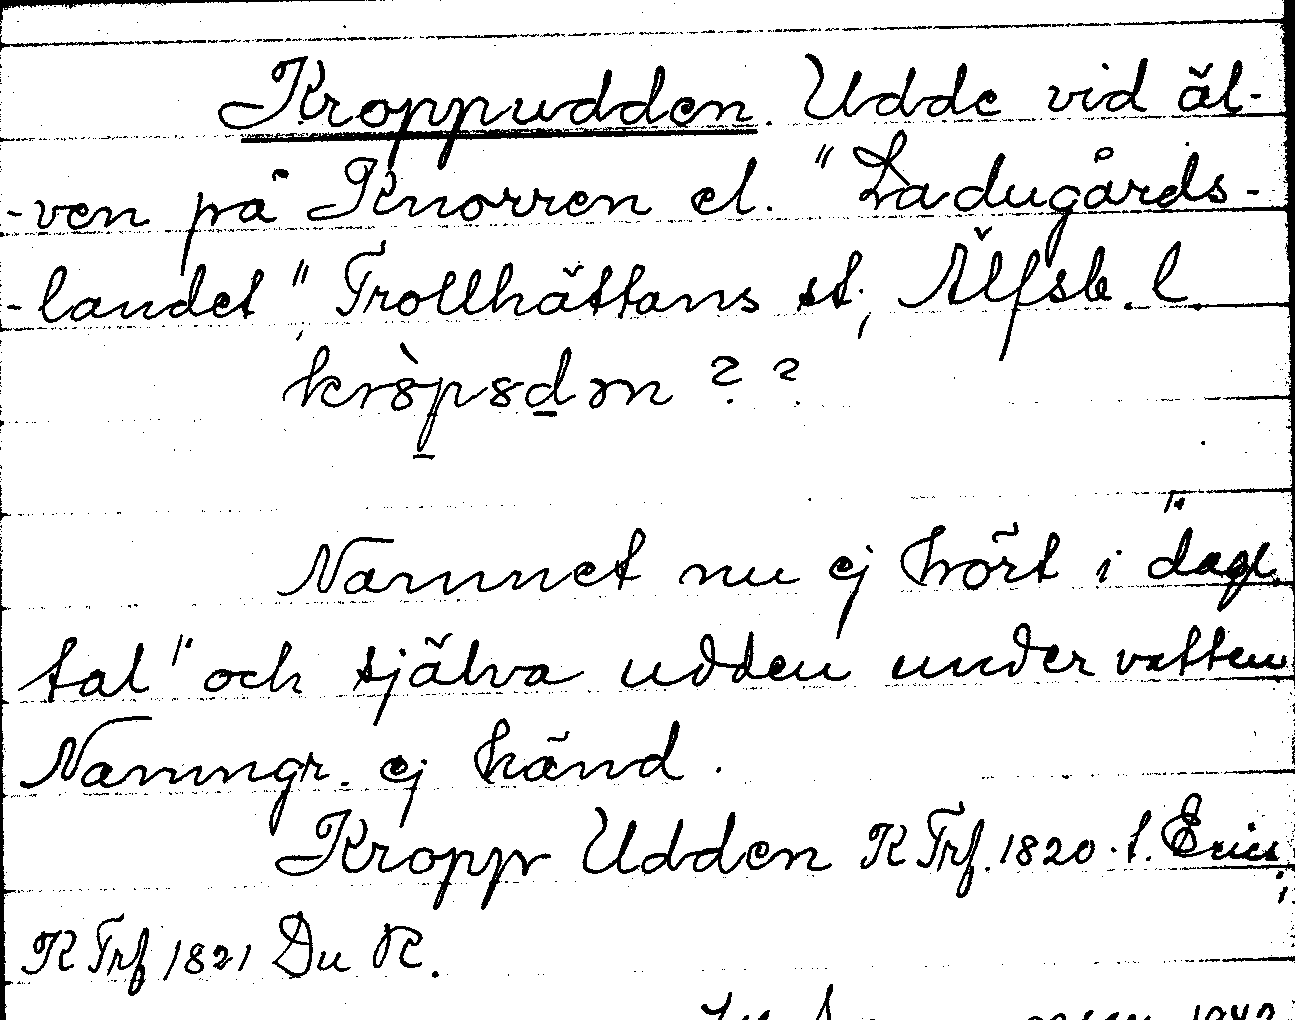 Kroppudden. Udde vid äl-
-ven på Knorren el. "Ladugårds-
-landet", Trollhättans st., Älfsb. l.
kròpsdən ? ?
Namnet nu ej hört i "dagl.
tal" och själva udden under vatten
Namngr. ej känd.
Kropp Udden K Trf. 1820. f. Erics
K Trf 1821 Du R.
1942